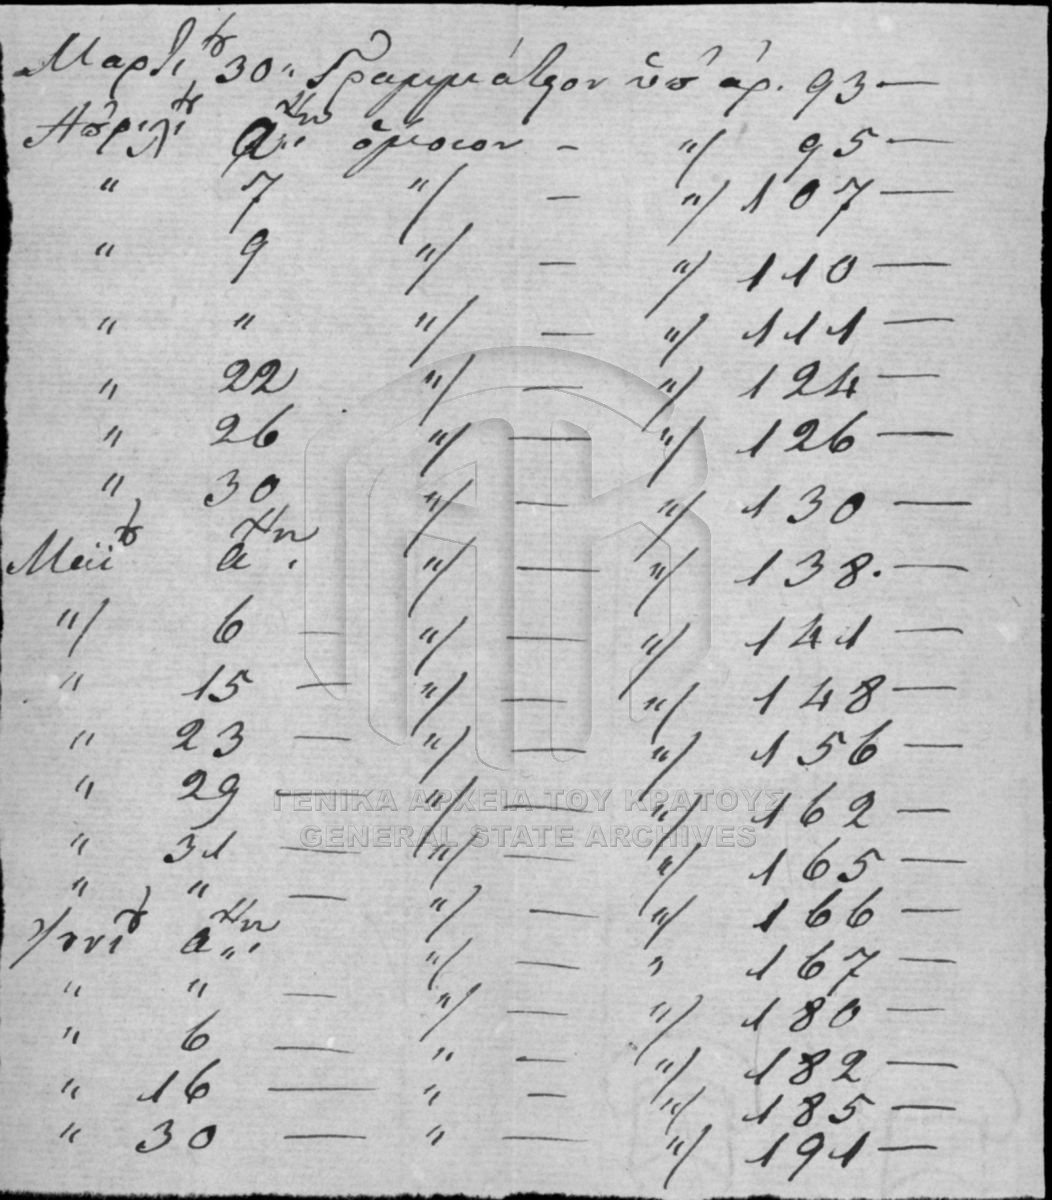 Μαρτίου 30 " Γραμμάτιον ὑπ' ἀρ. 93 —
Ἀπριλίου αην " ὅμοιον – "/ 95 —
" 7 "/ — "/ 107 —
" 9 "/ — "/ 110 —
" " "/ — "/ 111 —
" 22 "/ — "/ 124 —
" 26 "/ — "/ 126 —
" 30 "/ — "/ 130 —
Μαΐου αην. "/ — "/ 138. —
"/ 6 — "/ — "/ 141 —
" 15 — "/ — "/ 148 —
" 23 — "/ — "/ 156 —
" 29 — "/ — "/ 162 —
ΓΕΝΙΚΑ ΑΡΧΕΙΑ ΤΟΥ ΚΡΑΤΟΥΣ
GENERAL STATE ARCHIVES
" 31 — "/ — "/ 165 —
" " — "/ — "/ 166 —
Ἰουνίου αην " "/ — " 167 —
" " — "/ — "/ 180 —
" 6 — " — "/ 182 —
" 16 — " — "/ 185 —
" 30 — " — "/ 191 —